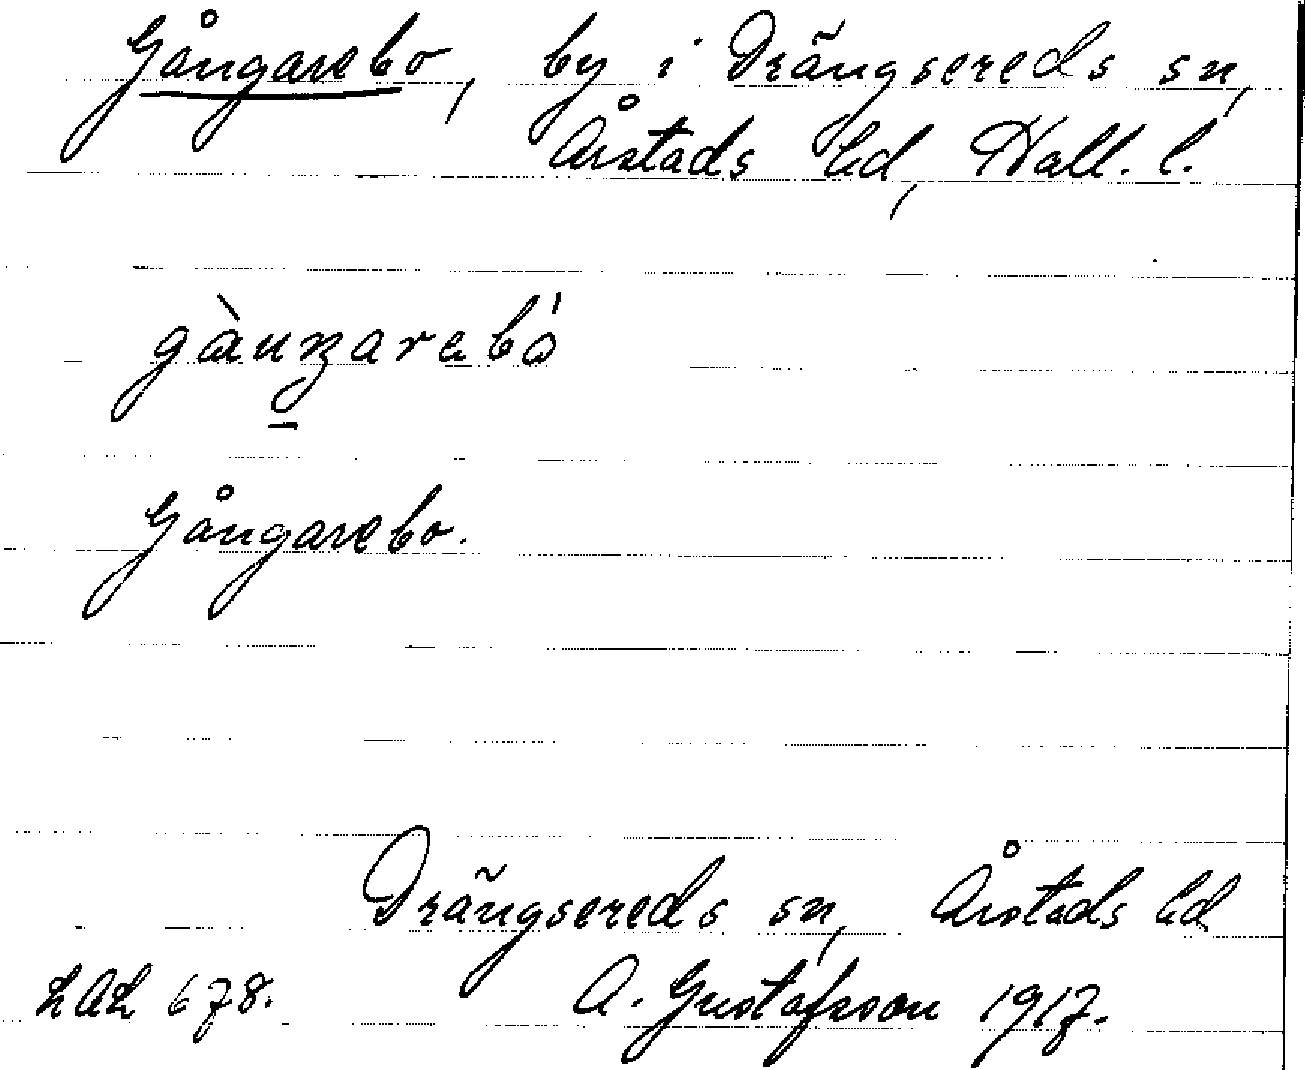 Gångarebo, by i Drängsereds sn,
Årstads hd, Hall. l.
Gångarebo.
Drängsereds sn, Årstads hd
LAL 678. A. Gustafsson 1917.